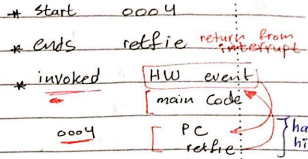 * start 0004
* ends retfie return from interrupt
* invoked HW event
main code
0004 PC
retfie